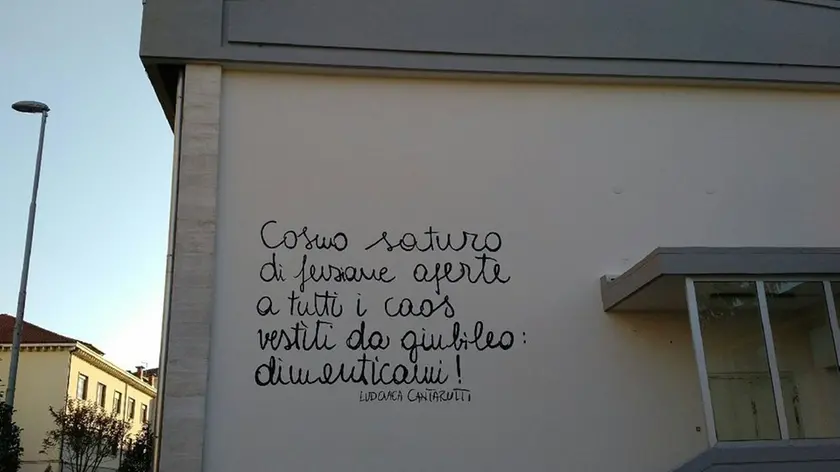 Cosmo saturo
di persiane aperte
a tutti i caos
vestiti da giubileo:
dimenticami!
LUDOVICA CANTARUTTI